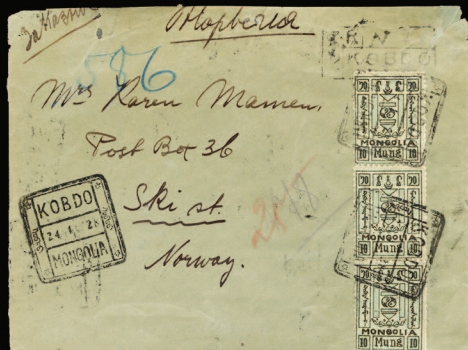 Заказное
Норвегия
R N
KOBDO
586
Mrs Karen Mamen,
Post Box 36
Ski st.
Norway.
KOBDO
MONGOLIA
MONGOLIA
10 Mung 10
MONGOLIA
10 Mung 10
MONGOLIA
10 Mung 10